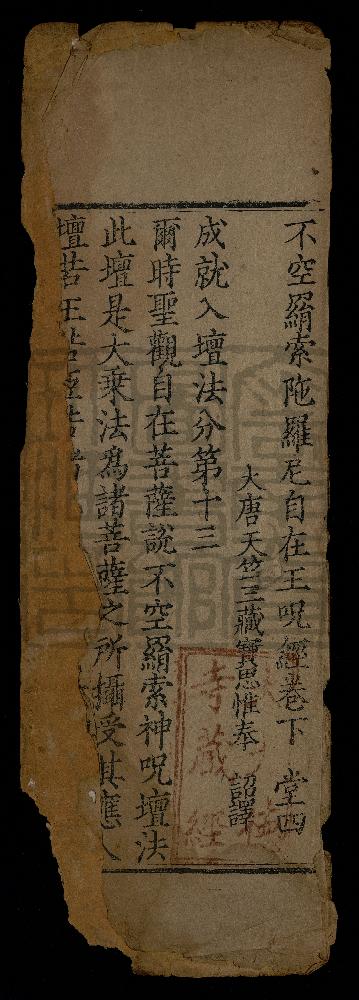 不空羂索陁羅尼自在王呪經卷下　堂四
大唐天竺三藏寶思惟奉　詔譯
成就入壇法分第十三
爾時聖觀自在菩薩説不空羂索神呪壇法
此壇是大乗法爲諸菩薩之所攝受其應入
壇若王
寺藏經